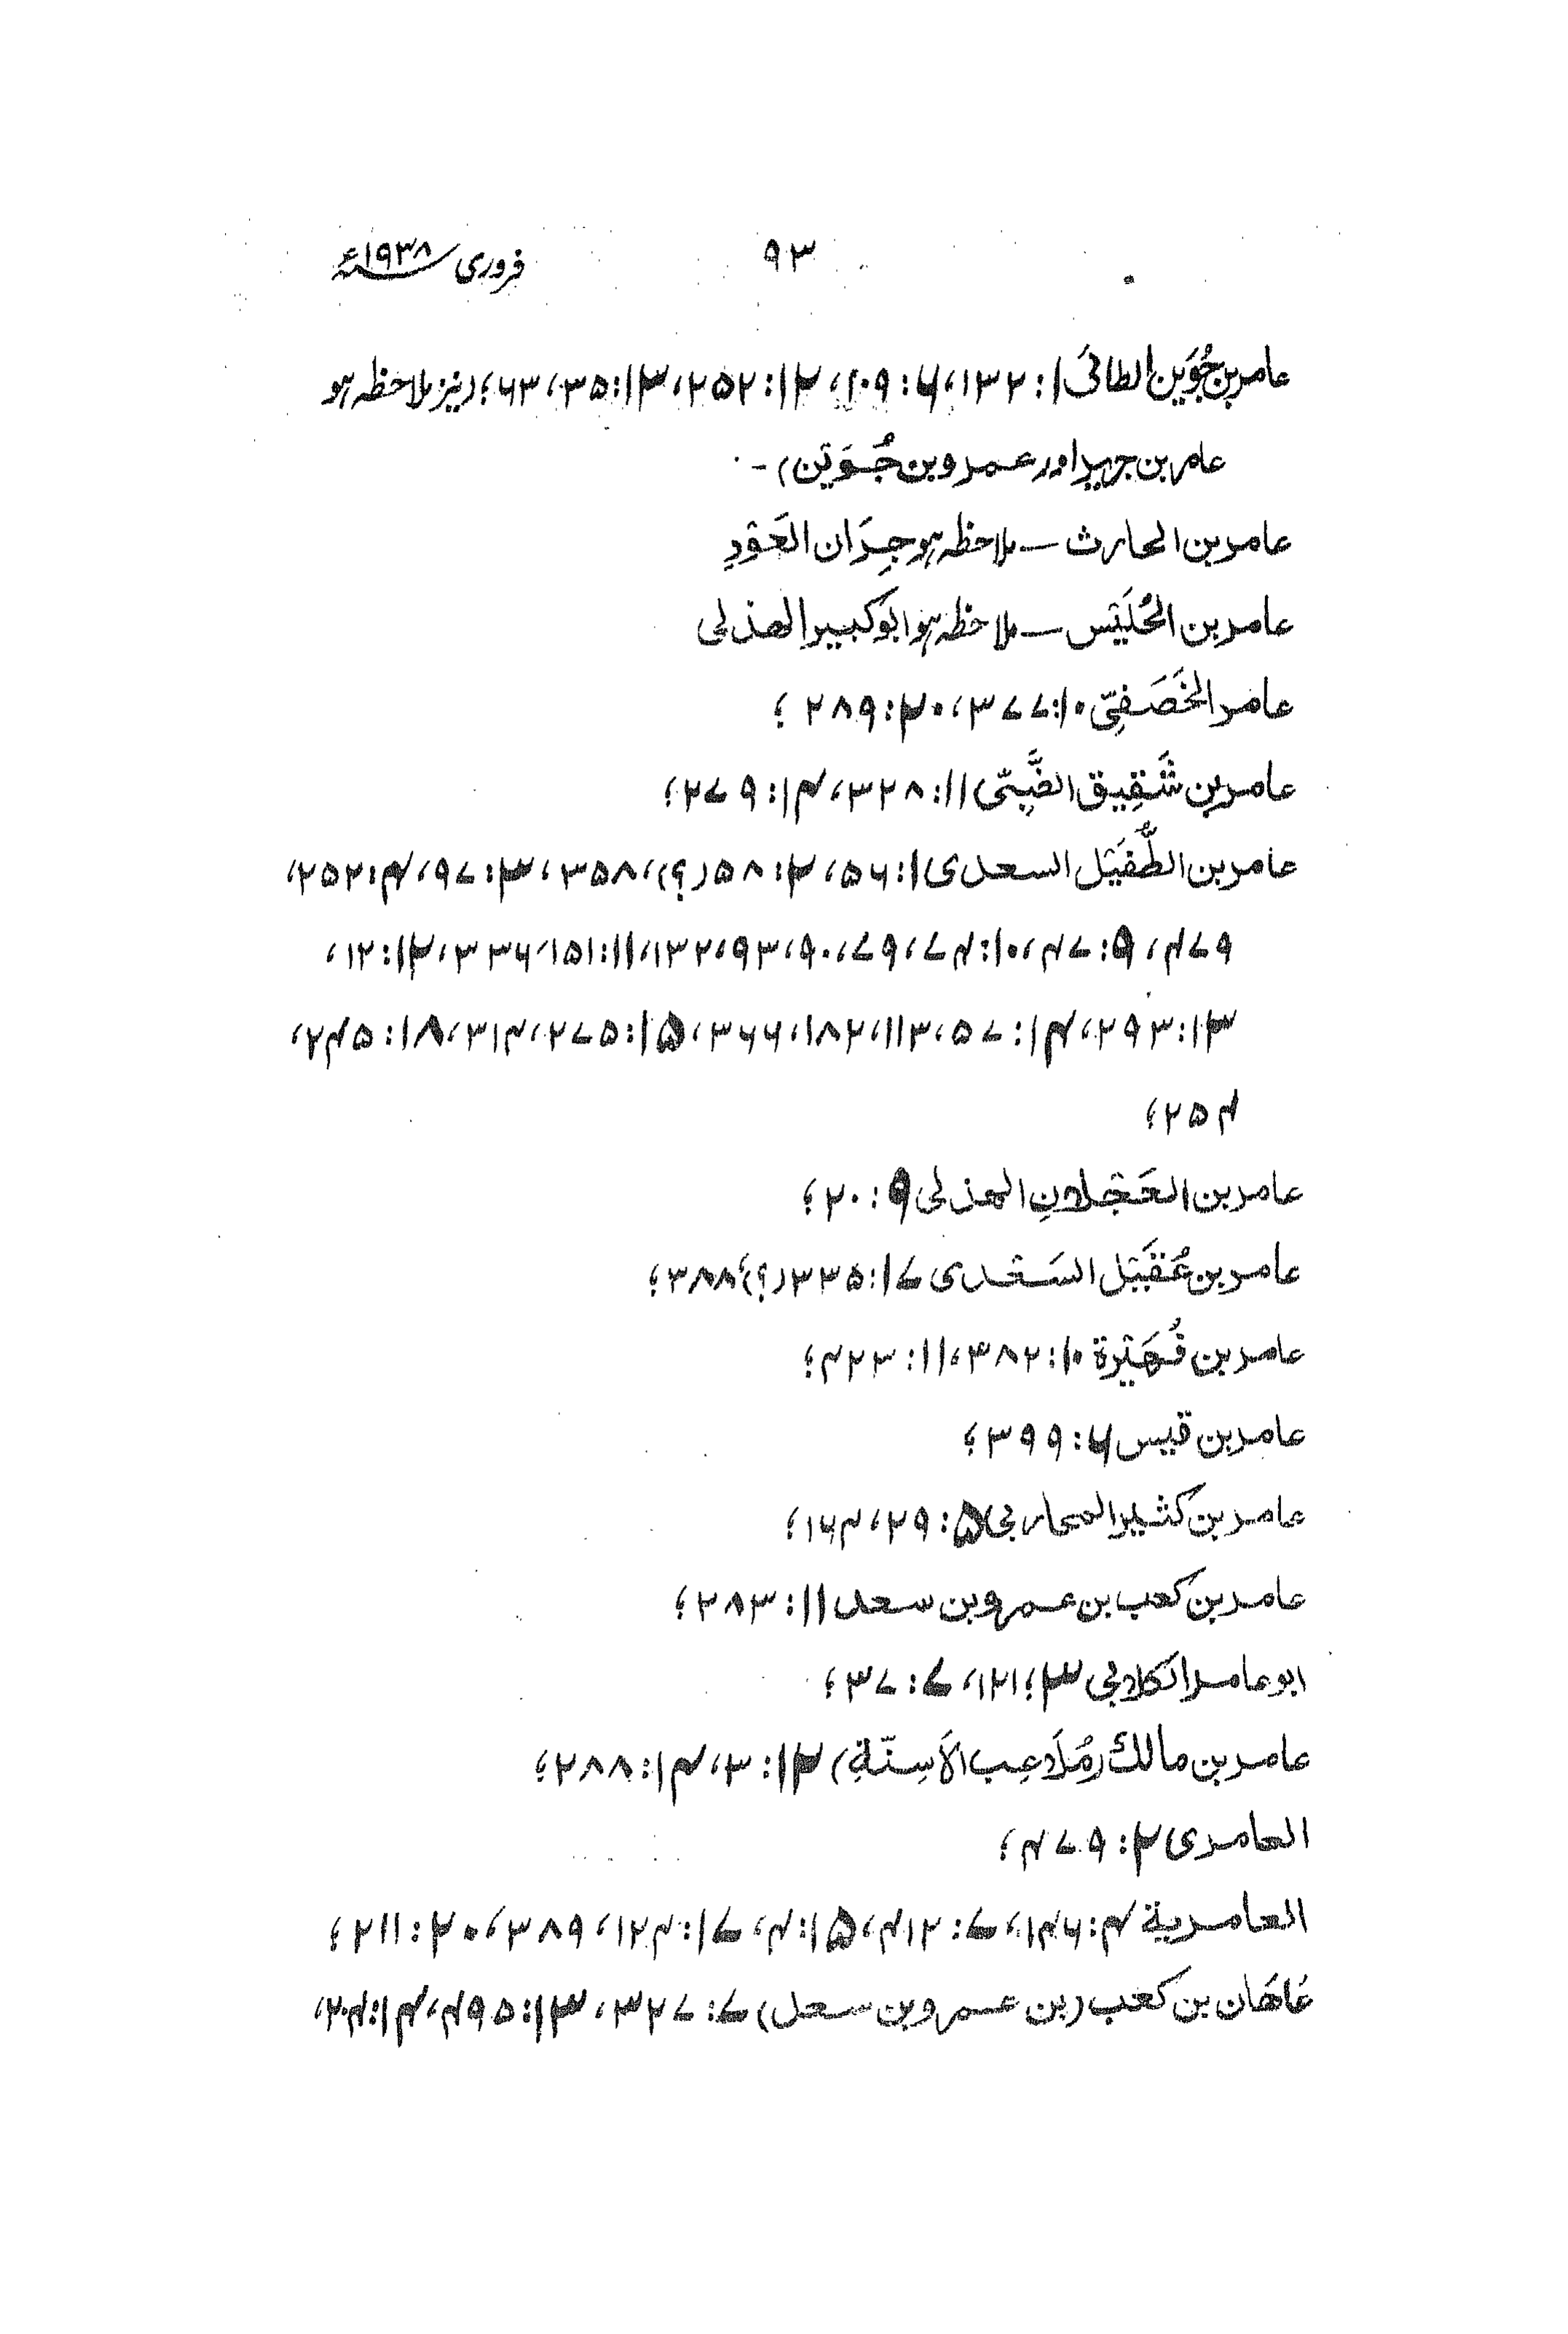 ۹۳ فروری ۱۹۳۸ء
عامر بن جُوَین الطائی ۱: ۱۳۲، ۶: ۱۰۹، ۱۲: ۲۵۲، ۱۳: ۳۵، ۶۳؛ (نیز ملاحظہ ہو
عامر بن جریر اور عمرو بن جُوَین)۔
عامر بن الحارث — ملاحظہ ہو جِرَان العَوْدِ
عامر بن الحُلَیْس — ملاحظہ ہو ابو کبیر الھذلی
عامر الخَصَفِیّ ۱۰: ۳۷۷، ۲۰: ۲۸۹؛
عامر بن شَقِیق الضَّبِّی ۱۱: ۳۲۸، ۱۴: ۲۷۹؛
عامر بن الطُّفَیْل السعدی ۱: ۵۶، ۲: ۵۸(؟)، ۳۵۸، ۳: ۹۷، ۴: ۲۵۲،
۴۷۹، ۹: ۴۷، ۱۰: ۷۴، ۷۹، ۹۰، ۹۳، ۱۳۲، ۱۱: ۱۵۱، ۳۳۶، ۱۲: ۱۲،
۱۳: ۲۹۳، ۱۴: ۵۷، ۱۱۳، ۱۸۲، ۳۶۶، ۱۵: ۲۷۵، ۳۱۴، ۱۸: ۲۴۵،
۲۵۴؛
عامر بن العَجْلانِ الھذلی ۹: ۲۰؛
عامر بن عُقَیْل السَعْدی ۱۷: ۳۳۵(؟)، ۳۸۸؛
عامر بن فُهَیْرة ۱۰: ۳۸۲، ۱۱: ۴۲۳؛
عامر بن قیس ۶: ۳۹۹؛
عامر بن کثیر المحاربی ۵: ۲۹، ۱۶۴؛
عامر بن کعب بن عمرو بن سعد ۱۱: ۲۸۳؛
ابو عامر الکلابی ۳؛ ۱۲۱، ۷: ۳۷؛
عامر بن مالك (مُلَاعِب الاَسِنّةِ) ۱۲: ۳، ۱۴: ۲۸۸؛
العامری ۲: ۴۷۹؛
العامریة ۴: ۱۴۶، ۷: ۴۱۲، ۱۵: ۴، ۱۷: ۱۲۴، ۳۸۹، ۲۰: ۲۱۱؛
عَاهَان بن کعب (بن عمرو بن سعد) ۷: ۳۲۷، ۱۳: ۴۹۵، ۱۴: ۲۰۴،